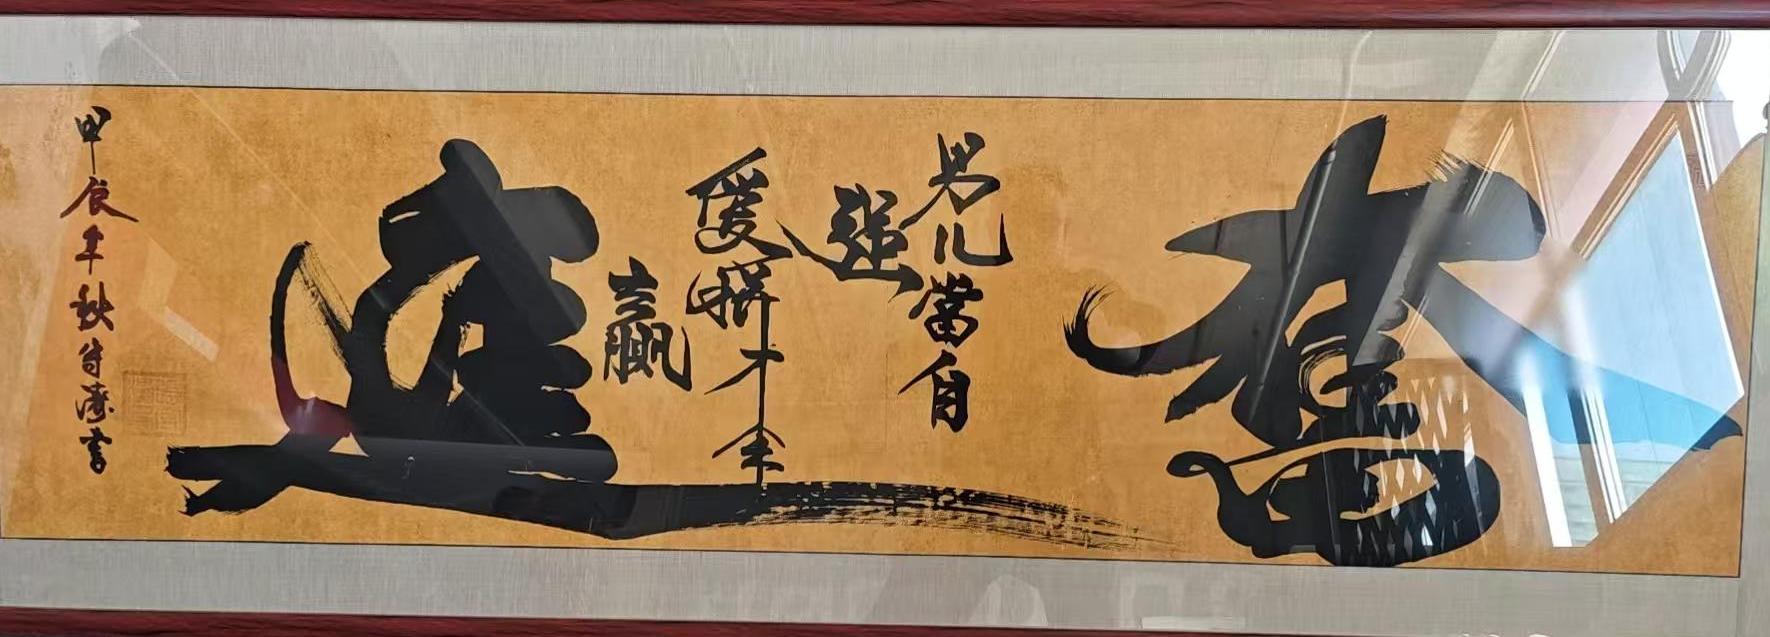 奮
男儿當自
强
爱拼才会
赢
進
甲辰年秋
書